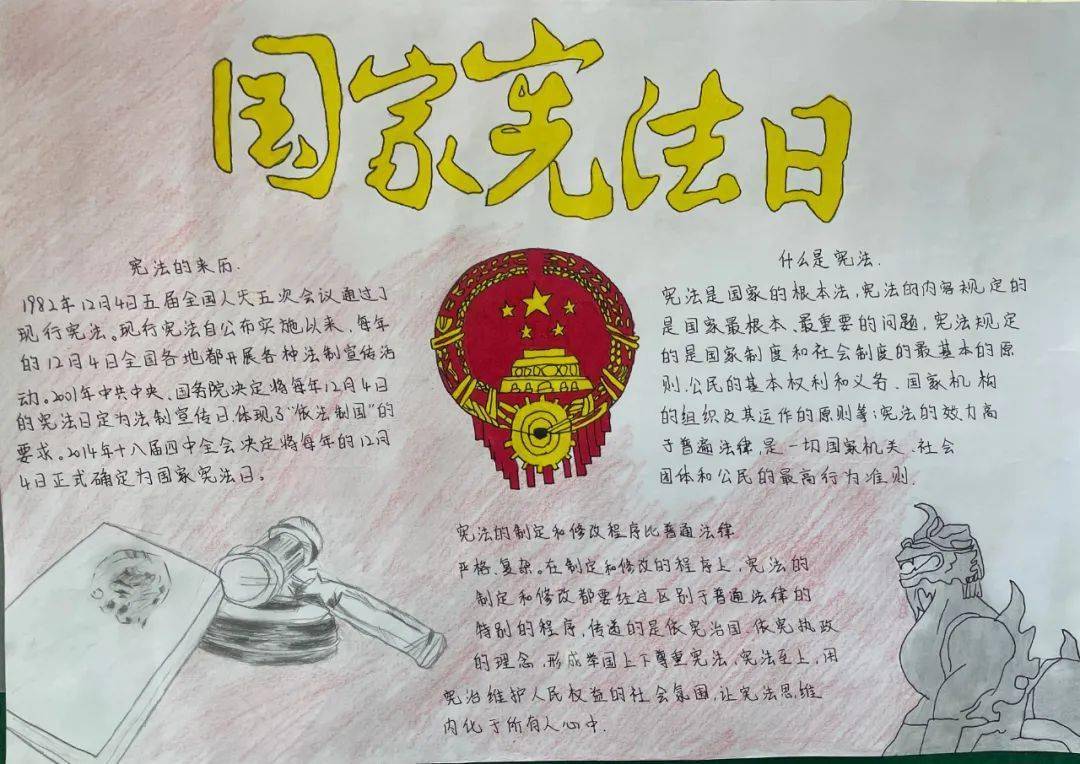 国家宪法日
宪法的来历.
1982年12月4日五届全国人大五次会议通过了
现行宪法。现行宪法自公布实施以来、每年
的12月4日全国各地都开展各种法制宣传活
动。2001年中共中央、国务院决定将每年12月4日
的宪法日定为法制宣传日体现了“依法制国”的
要求。2014年十八届四中全会决定将每年的12月
4日正式确定为国家宪法日。
什么是宪法.
宪法是国家的根本法,宪法的内容规定的
是国家最根本、最重要的问题,宪法规定
的是国家制度和社会制度的最基本的原
则.公民的基本权利和义务、国家机构
的组织及其运作的原则等;宪法的效力高
于普通法律,是一切国家机关、社会
团体和公民的最高行为准则.
宪法的制定和修改程序比普通法律
严格、复杂。在制定和修改的程序上,宪法的
制定和修改都要经过区别于普通法律的
特别的程序,传递的是依宪治国、依宪执政
的理念,形成举国上下尊重宪法,宪法至上、用
宪治维护人民权益的社会氛围,让宪法思维
内化于所有人心中.